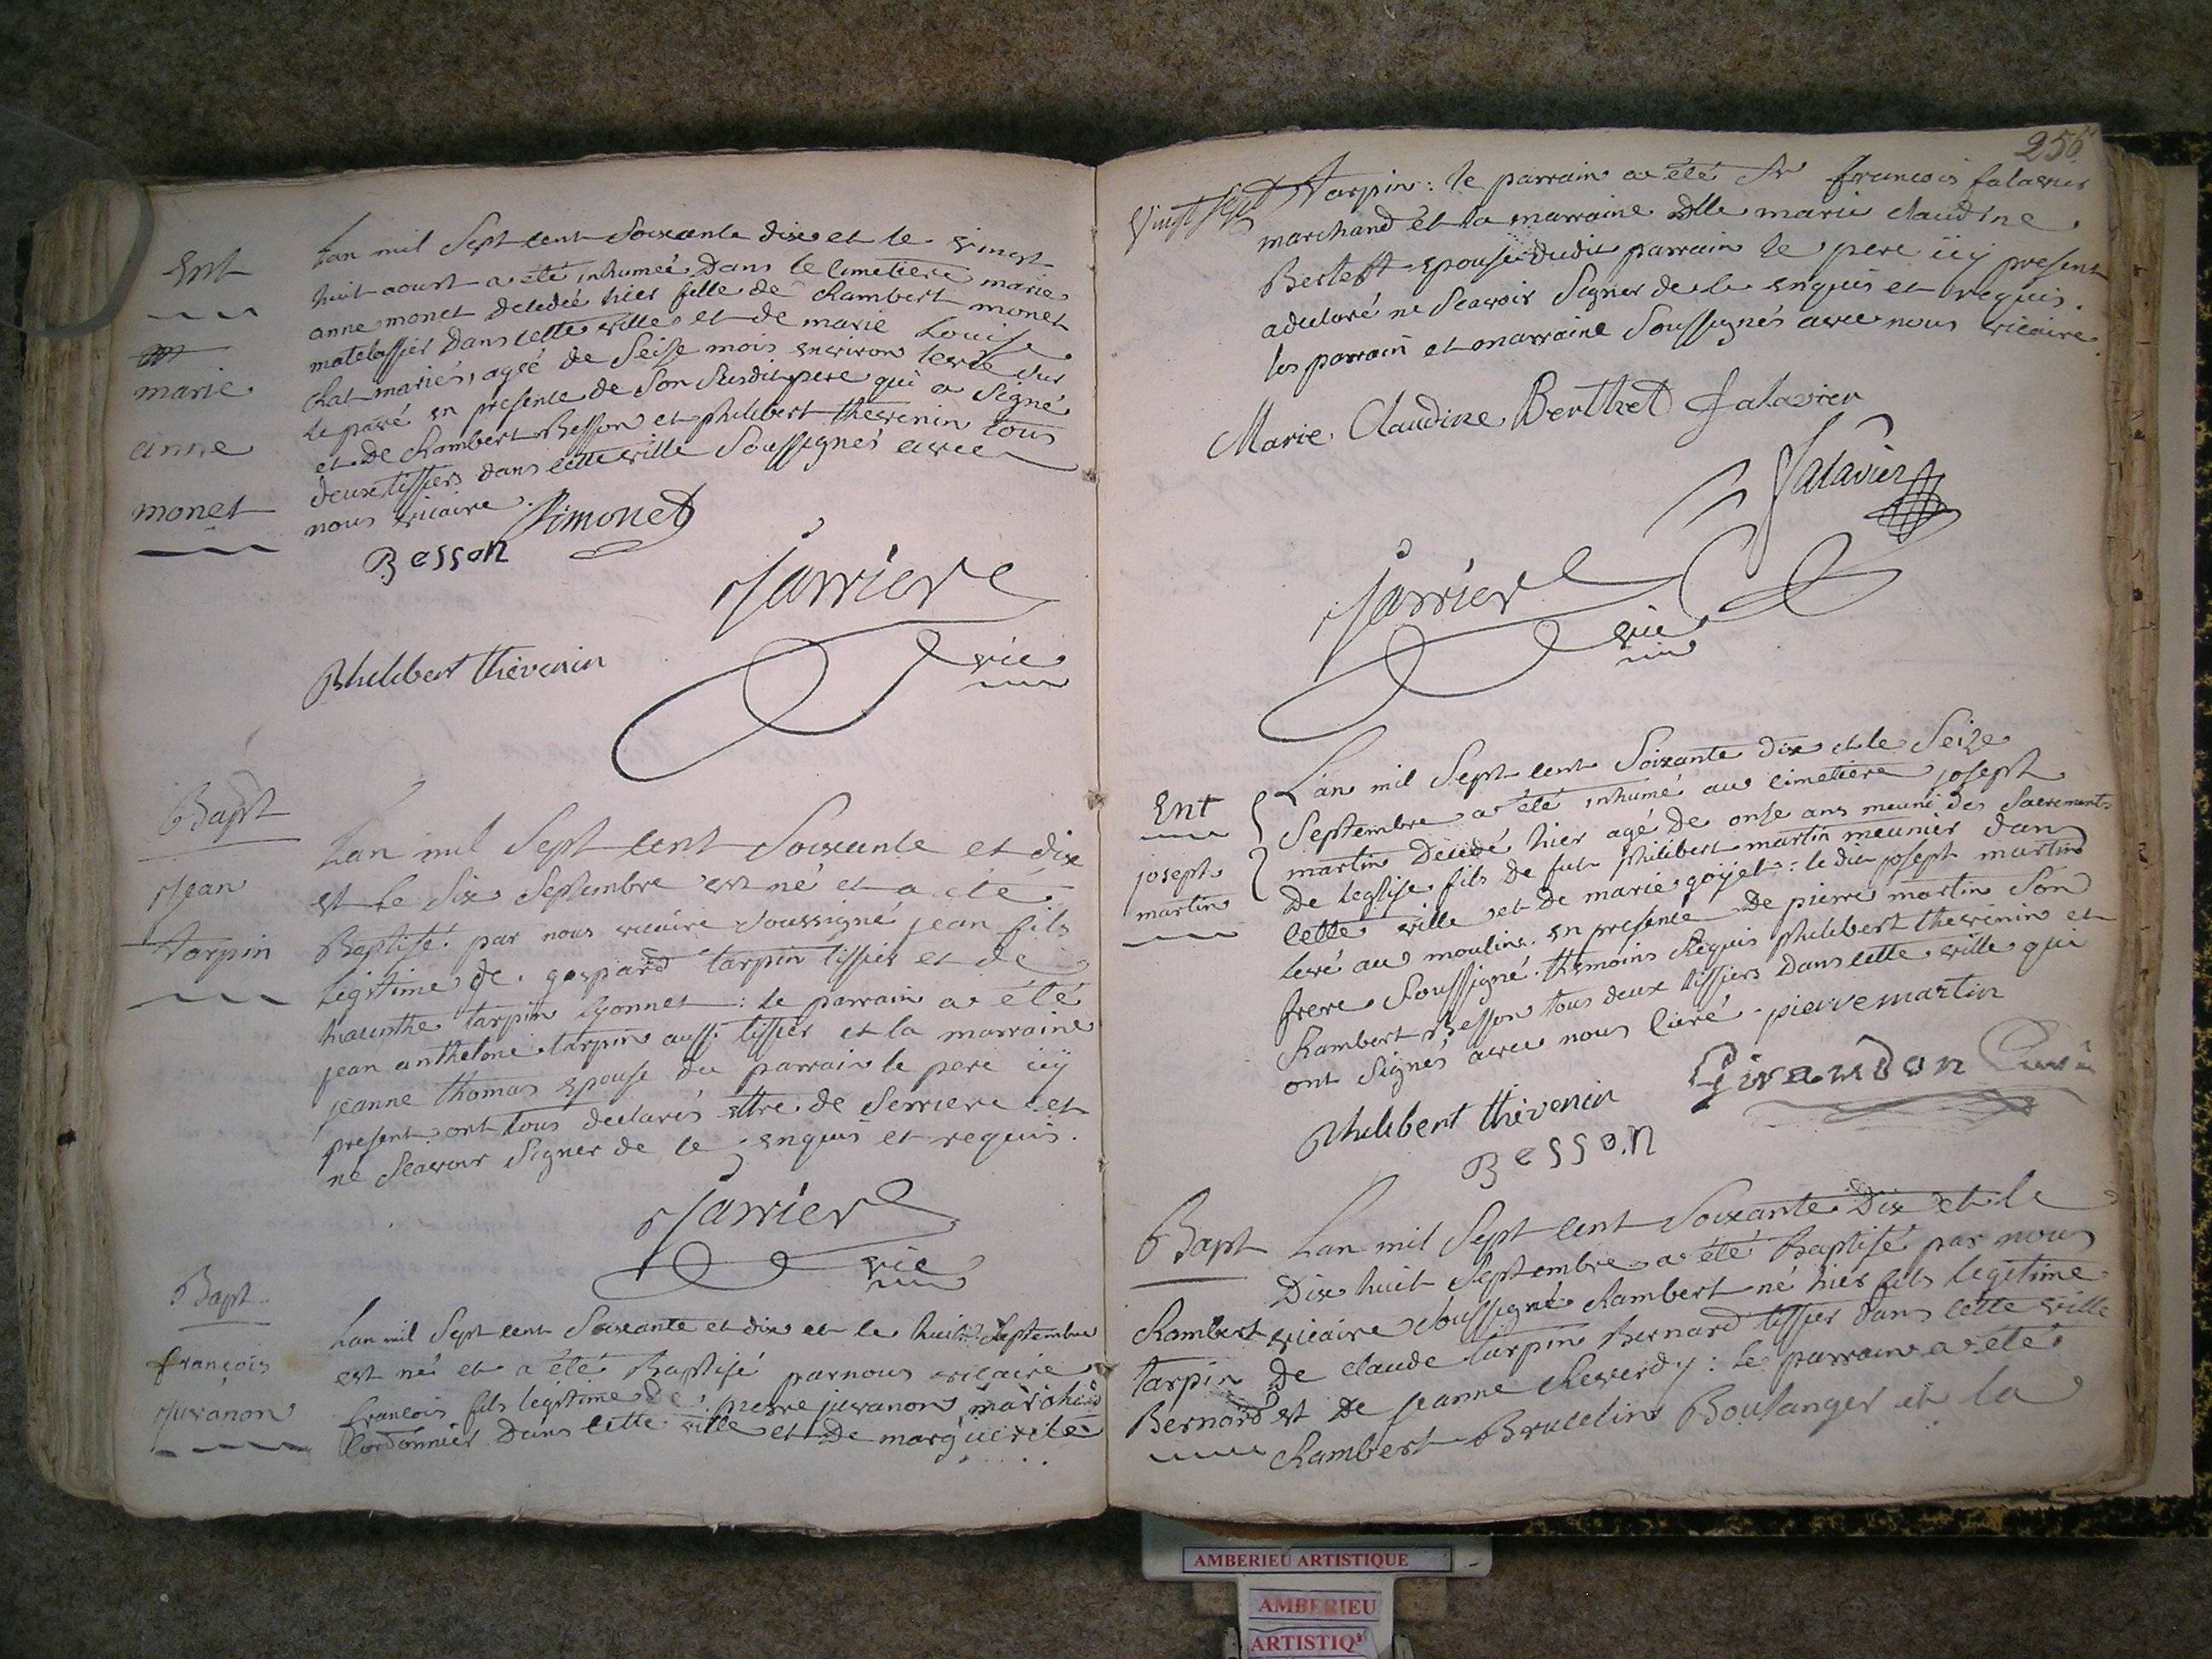 Ent
marie
anne
monet
Lan mil Sept cent Soixante dix et le vingt
huit aoust a été inhumeé Dans le Cimetiere marie
anne monet decedeé hier fille de Rambert monet
matelassier Dans cette ville et de marie Louise
Chat mariés, ageé de Seize mois environ levé Sur
le pavé en presence de Son Susdit pere qui a Signé
et de Rambert Besson et philibert thevenin tous
deux tissiers dans cette ville Soussignés avec
nous vicaire.
Simonet
Besson
Jarriere
vic
Philibert thevenin
Bapt
Jean
tarpin
Lan mil Sept cent Soixante et dix
et le Six Septembre est né et a été
Baptisé par nous vicaire Soussigné jean fils
Legitime de gaspard tarpin tissier et de
hiacinthe tarpin lyonnet : le parrain a été
jean anthelme tarpin aussi tissier et la marraine
jeanne thomas epouse du parrain le pere icy
present ont tous declarés etre de Serriere et
ne Scavoir Signer de ce enquis et requis.
Jarriere
vic
Bapt
françois
Juvanon
Lan mil Sept cent Soixante et dix et le huit Septembre
est né et a été Baptisé par nous vicaire
francois fils legitime de pierre juvanon marchand
Cordonnier Dans cette ville et De marguerite
256
Vingt sept
tarpin : le parrain a été Sr francois falavier
marchand et la marraine Dlle marie claudine
Bertet epouse dudit parrain le pere icy present
a declaré ne Scavoir Signer de ce enquis et requis.
les parrain et marraine Soussignés avec nous vicaire.
Marie Claudine Berthet falavier
falavier
Jarriere
vic
Ent
joseph
martin
L'an mil Sept cent Soixante dix et le Seize
Septembre a été inhumé au cimetiere joseph
martin Decedé hier agé De onse ans meuni des Sacrements
De leglise fils de feu philibert martin meunier dans
cette ville et De marie goyet : le dit joseph martin
levé au moulin. en presence De pierre martin Son
frere Soussigné. themoins Requis philibert thevenin et
Rambert Besson tous deux tissiers Dans cette ville qui
ont Signés avec nous Curé. pierre martin
Giraudon Curé
Philibert thevenin
Besson
Bapt
Rambert
tarpin
Bernard
Lan mil Sept cent Soixante Dix et le
Dix huit Septembre a été Baptisé par nous
vicaire Soussigné Rambert né hier fils legitime
De claude tarpin Bernard tissier Dans cette ville
et De jeanne Reverdy : le parrain a été
Rambert Brucelin Boulanger et la
AMBERIEU ARTISTIQUE
AMBERIEU
ARTISTIQ